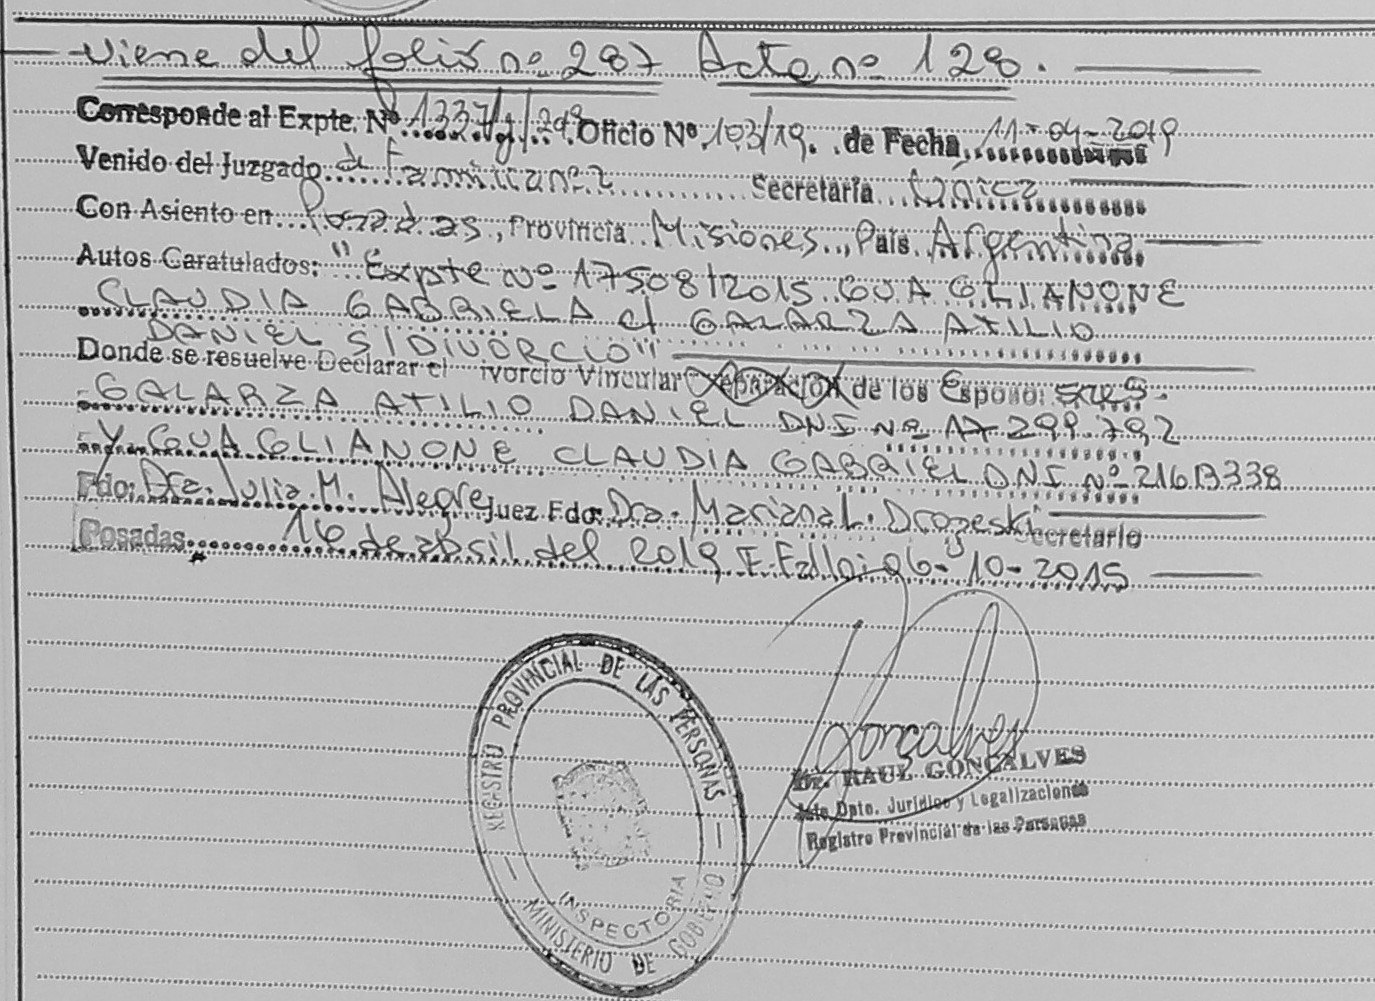 Viene del folio nº 287 Acta nº 128.
Corresponde al Expte. Nº 1337/g/2019 Oficio Nº 103/19. de Fecha 11-04-2019
Venido del Juzgado de Familia nº 2 Secretaría Única
Con Asiento en Posadas, Provincia Misiones, País Argentina
Autos Caratulados: "Expte Nº 17508/2015 GUAGLIANONE
CLAUDIA GABRIELA c/ GALARZA ATILIO
DANIEL S/DIVORCIO"
Donde se resuelve Declarar el ivorcio Vincular de los Esposos:
GALARZA ATILIO DANIEL DNI Nº 17.299.792
Y GUAGLIANONE CLAUDIA GABRIEL DNI Nº
Fdo: Dra. Julia M. Alegre Juez Fdo: Dra. Mariana L. Drozeski Secretario
Posadas 16 de abril del 2019 F. Fallo: 06-10-2015
REGISTRO PROVINCIAL DE LAS PERSONAS
INSPECTORIA
MINISTERIO DE GOBIERNO
Gonçalves
Dr. RAUL GONÇALVES
Dpto. Jurídico y Legalizaciones
Registro Provincial de las Personas